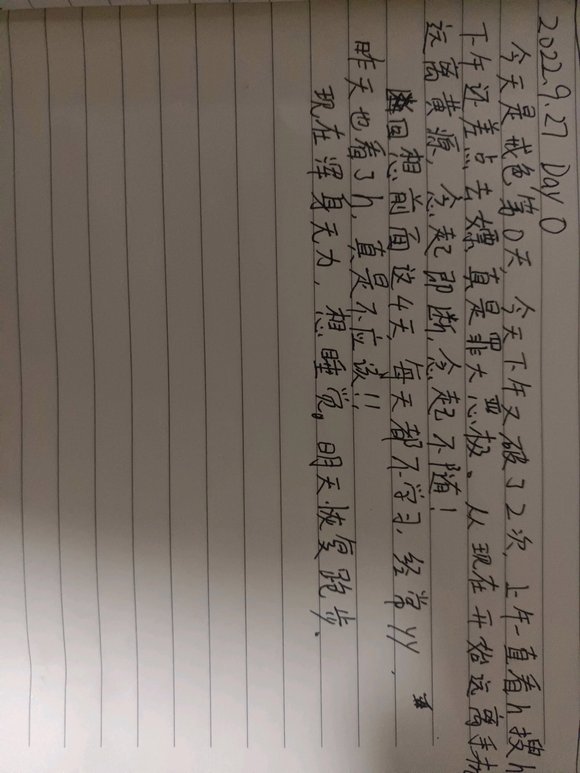 2022.9.27 Day 0
今天是戒色第0天,今天下午又破了2次,上午一直看h搜h
下午还差点去嫖真是罪大恶极。从现在开始远离手机
远离黄源,念起即断,念起不随!
回想前面这4天,每天都不学习,经常yy,
昨天也看了h,真是不应该!!
现在浑身无力,想睡觉。明天恢复跑步。